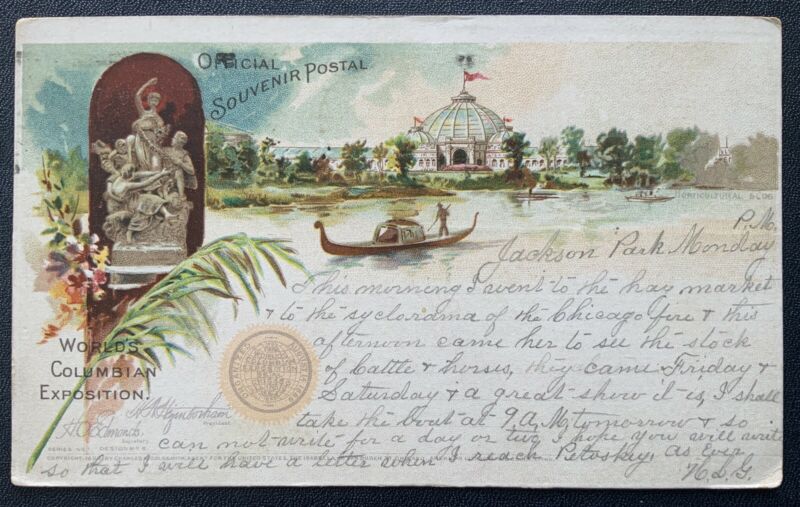 OFFICIAL
SOUVENIR POSTAL
HORTICULTURAL BLDG
P.M.
Jackson Park Monday
This morning I went to the hay market
& to the syclorama of the Chicago fire & this
afternoon came her to see the stock
of cattle & horses, they came Friday &
Saturday & a great show it is, I shall
take the boat at 9 A.M. tomorrow & so
can not write for a day or two, I hope you will write
so that I will have a letter when I reach Petoskey, as Ever
N.L.G.
WORLD'S
COLUMBIAN
EXPOSITION.
President
Secretary
SERIES No 1 DESIGN No